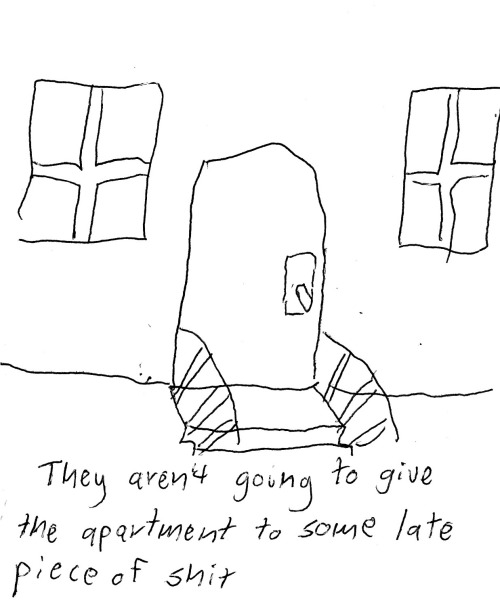 They aren't going to give
the apartment to some late
piece of shit